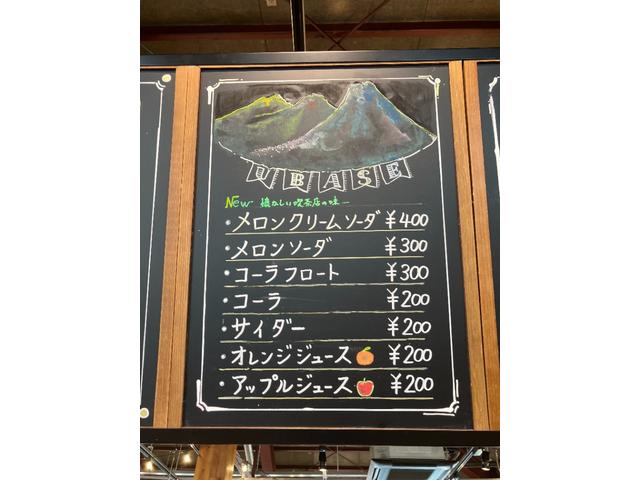 UBASE
New 懐かしい喫茶店の味
・メロンクリームソーダ ¥400
・メロンソーダ ¥300
・コーラフロート ¥300
・コーラ ¥200
・サイダー ¥200
・オレンジジュース ¥200
・アップルジュース ¥200